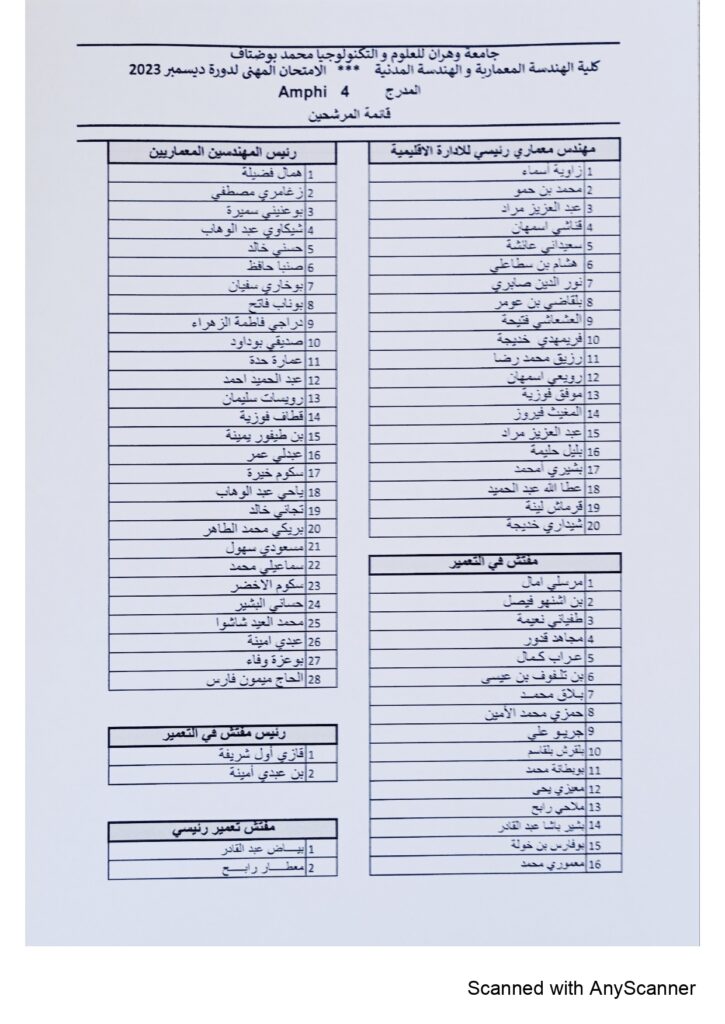 جامعة وهران للعلوم و التكنولوجيا محمد بوضياف
كلية الهندسة المعمارية و الهندسة المدنية *** الامتحان المهني لدورة ديسمبر 2023
المدرج Amphi 4
قائمة المرشحين
مهندس معماري رئيسي للادارة الاقليمية
1 زاوية أسماء
2 محمد بن حمو
3 عبد العزيز مراد
4 قناشي اسمهان
5 سعيداني عائشة
6 هشام بن سطاعلي
7 نور الدين صابري
8 بلقاضي بن عومر
9 العشعاشي فتيحة
10 فريمهدي خديجة
11 رزيق محمد رضا
12 رويعي اسمهان
13 موفق فوزية
14 المغيث فيروز
15 عبد العزيز مراد
16 بليل حليمة
17 بشيري أمحمد
18 عطا الله عبد الحميد
19 قرماش لينة
20 شيداري خديجة
مفتش في التعمير
1 مرسلي امال
2 بن اشنهو فيصل
3 طفياني نعيمة
4 مجاهد قدور
5 عراب كمال
6 بن تلفوف بن عيسى
7 بلاق محمد
8 حمزي محمد الأمين
9 جريو علي
10 بلقرش بلقاسم
11 بوبطانة محمد
12 معيزي يحى
13 ملاحي رابح
14 بشير باشا عبد القادر
15 بوفارس بن خولة
16 معموري محمد
رئيس المهندسين المعماريين
1 همال فضيلة
2 زغامري مصطفى
3 بوعنيني سميرة
4 شيكاوي عبد الوهاب
5 حسني خالد
6 صنبا حافظ
7 بوخاري سفيان
8 بوناب فاتح
9 دراجي فاطمة الزهراء
10 صديقي بوداود
11 عمارة حدة
12 عبد الحميد احمد
13 رويسات سليمان
14 قطاف فوزية
15 بن طيفور يمينة
16 عبدلي عمر
17 سكوم خيرة
18 ياحي عبد الوهاب
19 تجاني خالد
20 بريكي محمد الطاهر
21 مسعودي سهول
22 سماعيلي محمد
23 سكوم الاخضر
24 حساني البشير
25 محمد العيد شاشوا
26 عبدي امينة
27 بوعزة وفاء
28 الحاج ميمون فارس
رئيس مفتش في التعمير
1 قازي أول شريفة
2 بن عبدي أمينة
مفتش تعمير رئيسي
1 بياض عبد القادر
2 معطار رابح
Scanned with AnyScanner